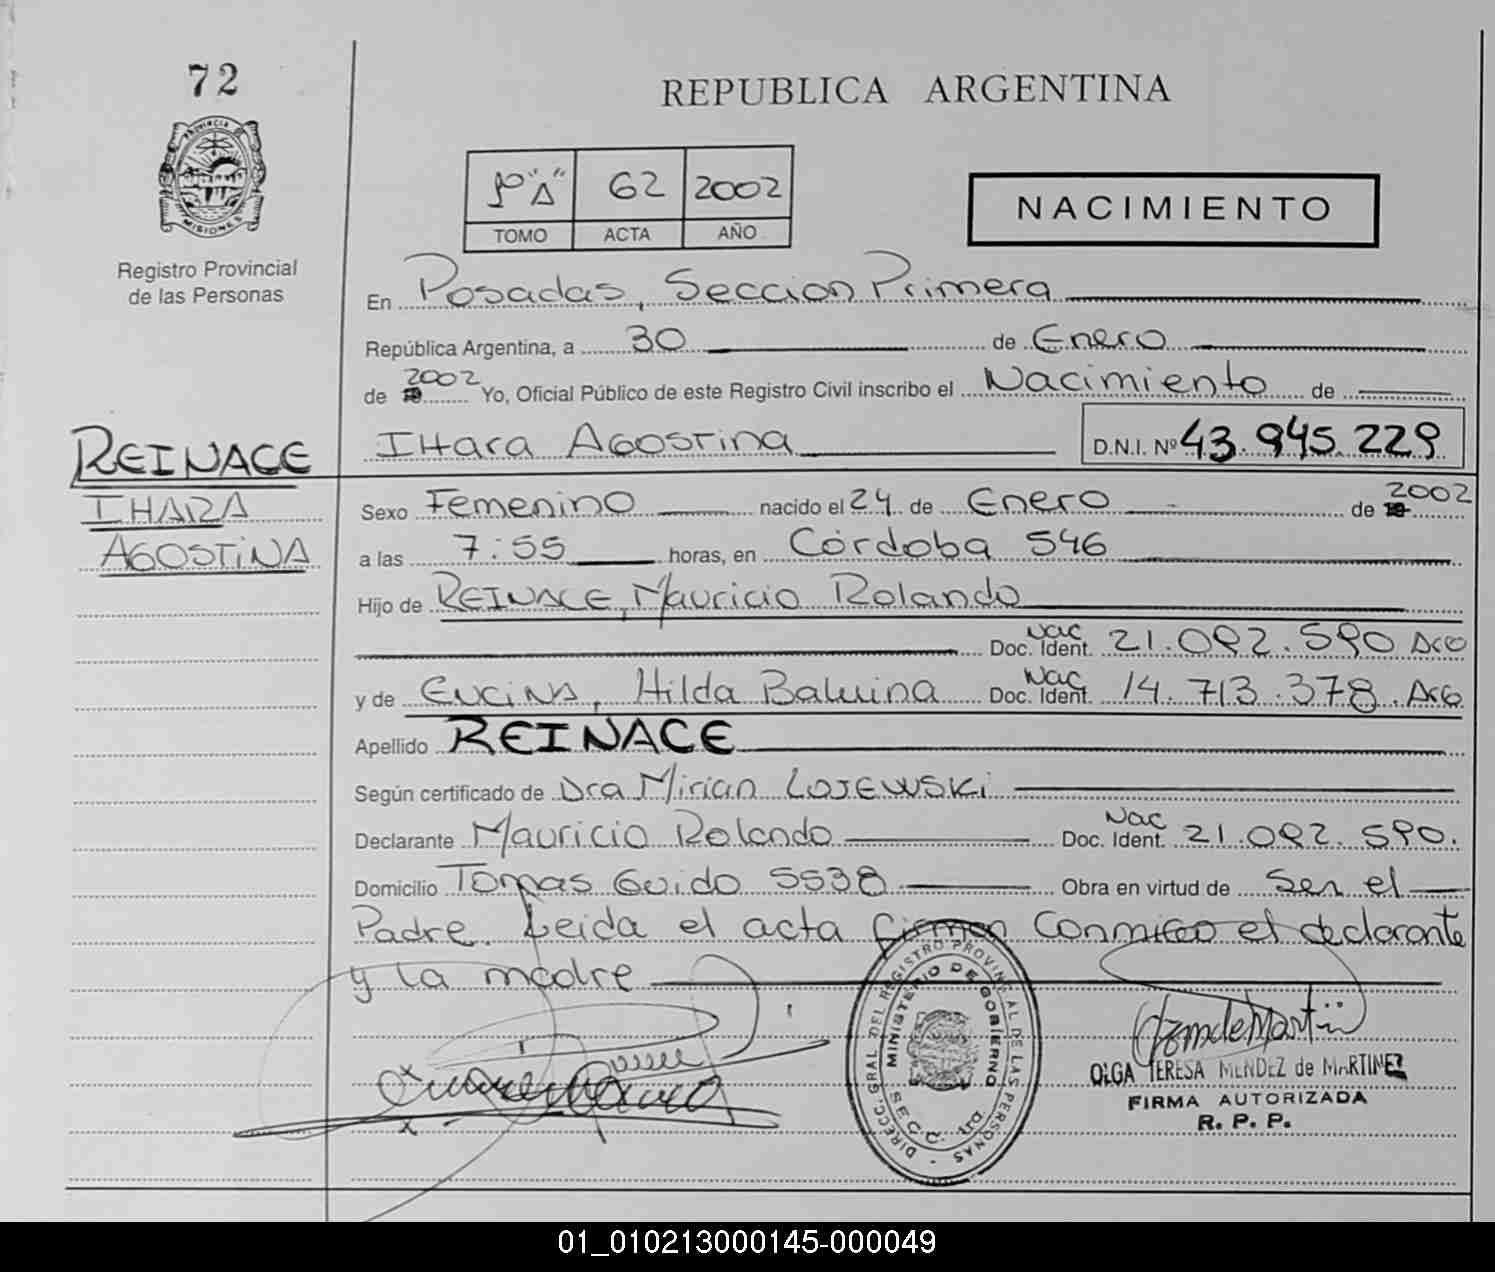 72
REPUBLICA ARGENTINA
PROVINCIA DE
MISIONES
Registro Provincial
de las Personas
1º "A" 62 2002
TOMO ACTA AÑO
NACIMIENTO
En Posadas, Seccion Primera
República Argentina, a 30 de Enero
de 2002 Yo, Oficial Público de este Registro Civil inscribo el Nacimiento de
IHara Agostina D.N.I. Nº 43.945.229
REINACE
IHARA
AGOSTINA
Sexo Femenino nacido el 24 de Enero de 2002
a las 7:55 horas, en Córdoba 546
Hijo de REINACE, Mauricio Rolando
Doc. Ident. Nac 21.092.590 Arg
y de Encina, Hilda Balvina Doc. Ident. Nac 14.713.378. Arg
Apellido REINACE
Según certificado de Dra Mirian LOJEWSKi
Declarante Mauricio Rolando Doc. Ident. Nac 21.092.590.
Domicilio Tomas Guido 5538 Obra en virtud de Ser el
Padre. Leida el acta firman conmigo el declarante
y la madre
DIRECC. GRAL DEL REGISTRO PROVINCIAL DE LAS PERSONAS
MINISTERIO DE GOBIERNO
SEC. 1ra.
OLGA TERESA MENDEZ de MARTINEZ
FIRMA AUTORIZADA
R. P. P.
01_010213000145-000049